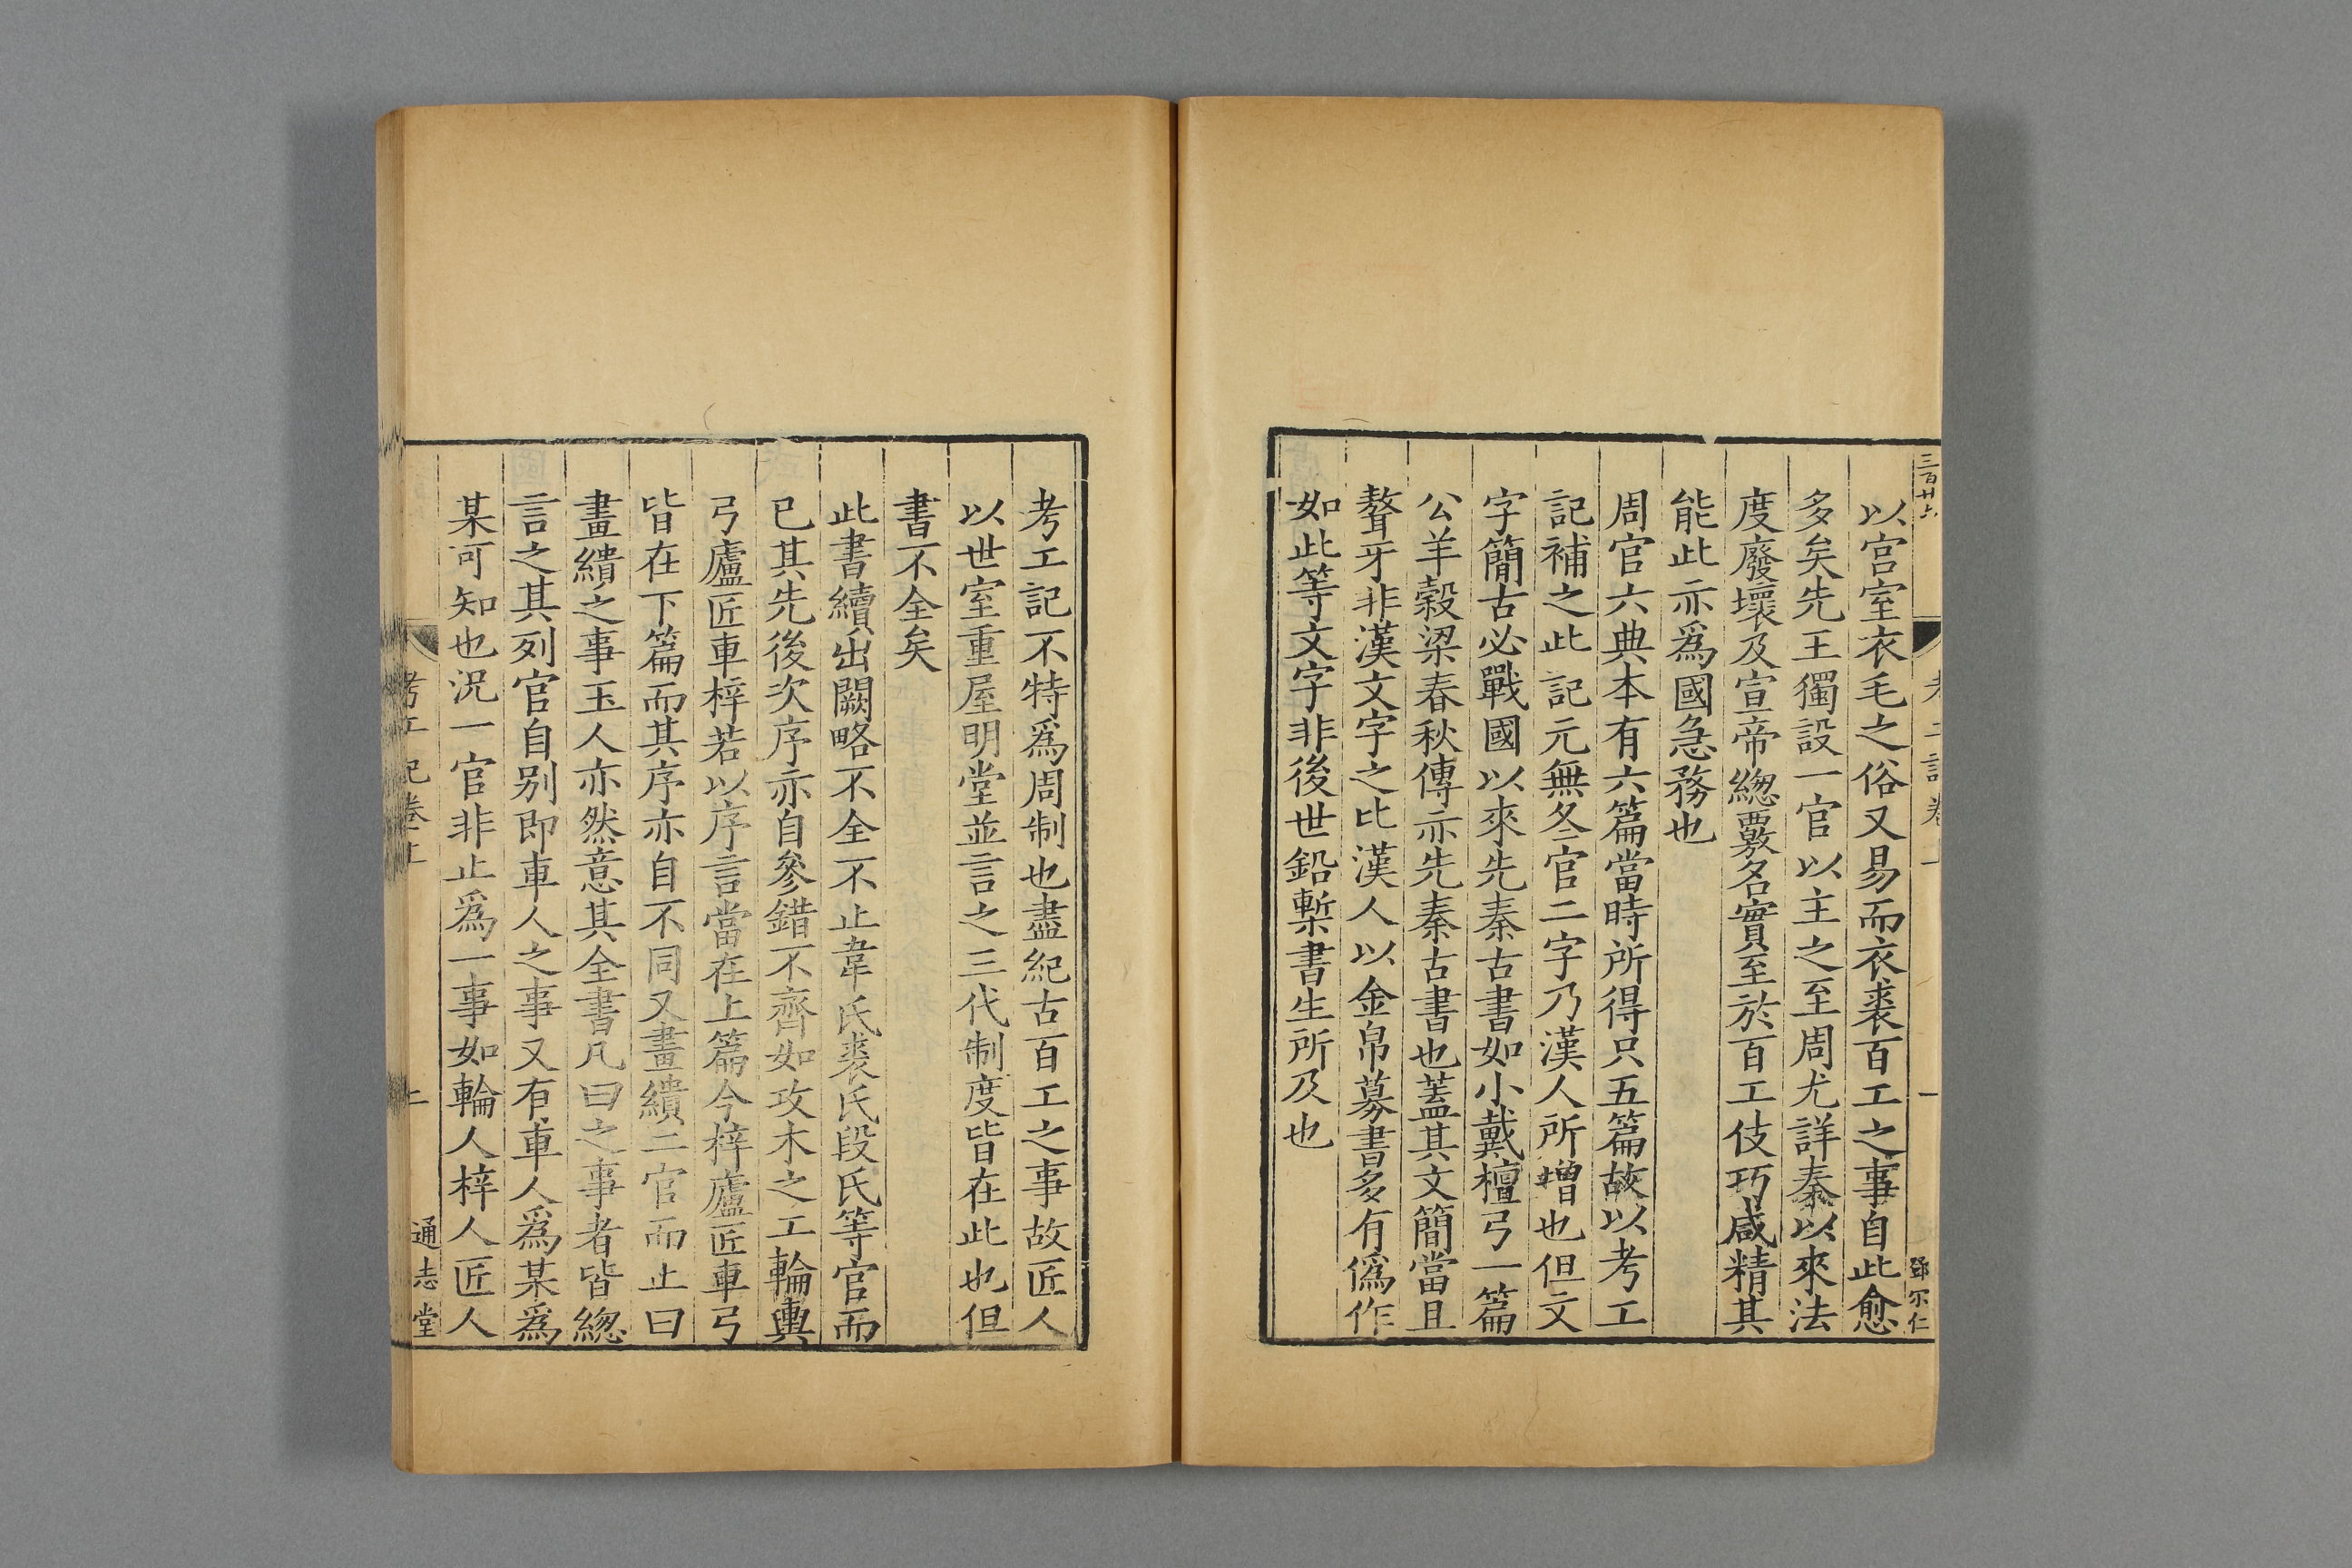 三百廿六
鄧尔仁
以宫室衣毛之俗又易而衣裘百工之事自此愈
多矣先王獨設一官以主之至周尤詳秦以來法
度廢壞及宣帝緫覈名實至於百工伎巧咸精其
能此亦爲國急務也
周官六典本有六篇當時所得只五篇故以考工
記補之此記元無冬官二字乃漢人所增也但文
字簡古必戰國以來先秦古書如小戴檀弓一篇
公羊穀梁春秋傳亦先秦古書也葢其文簡當且
聱牙非漢文字之比漢人以金帛募書多有僞作
如此等文字非後世鉛槧書生所及也
考工記不特爲周制也盡紀古百工之事故匠人
以世室重屋明堂並言之三代制度皆在此也但
書不全矣
此書續出闕略不全不止韋氏裘氏段氏等官而
已其先後次序亦自參錯不齊如攻木之工輪輿
弓廬匠車梓若以序言當在上篇今梓廬匠車弓
皆在下篇而其序亦自不同又畫繢二官而止曰
畫繢之事玉人亦然意其全書凡曰之事者皆緫
言之其列官自别即車人之事又有車人爲某爲
某可知也况一官非止爲一事如輪人梓人匠人
考工記卷上
通志堂